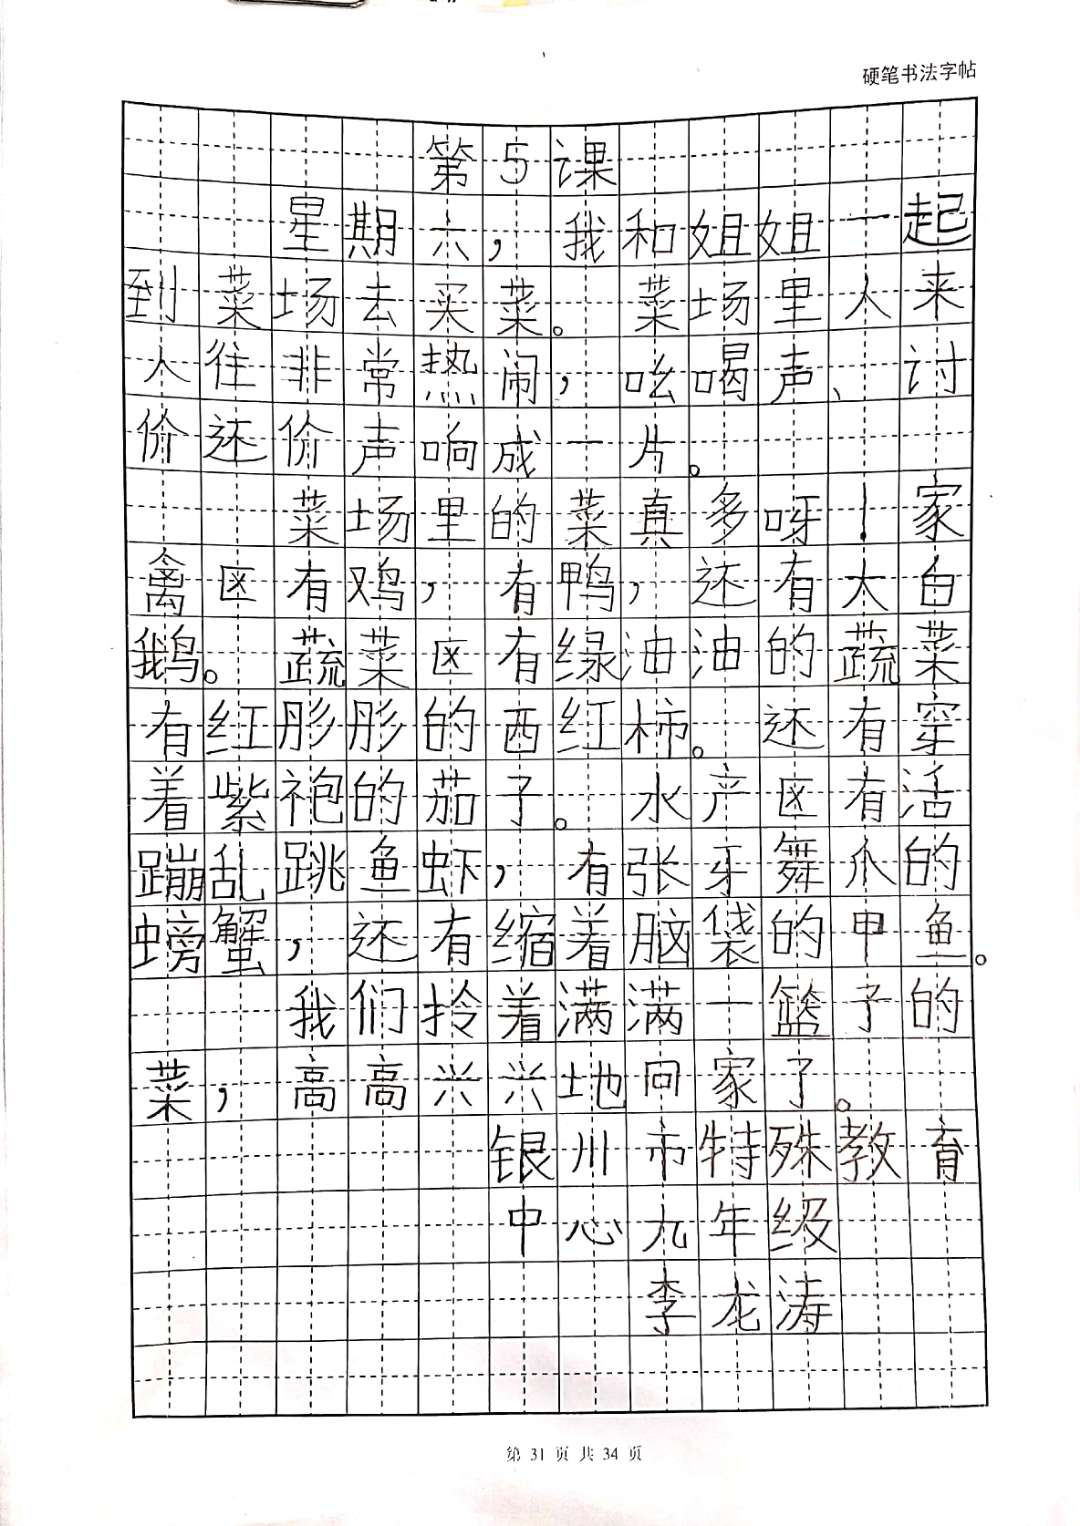 硬笔书法字帖
第5课
星期六，我和姐姐一起
到菜场去买菜。菜场里人来
人往非常热闹，吆喝声、讨
价还价声响成一片。
菜场里的菜真多呀！家
禽区有鸡，有鸭，还有大白
鹅。蔬菜区有绿油油的蔬菜
有红彤彤的西红柿。还有穿
着紫袍的茄子。水产区有活
蹦乱跳鱼虾，有张牙舞爪的
螃蟹，还有缩着脑袋的甲鱼。
我们拎着满满一篮子的
菜，高高兴兴地回家了。
银川市特殊教育
中心九年级
李龙涛
第 31 页 共 34 页